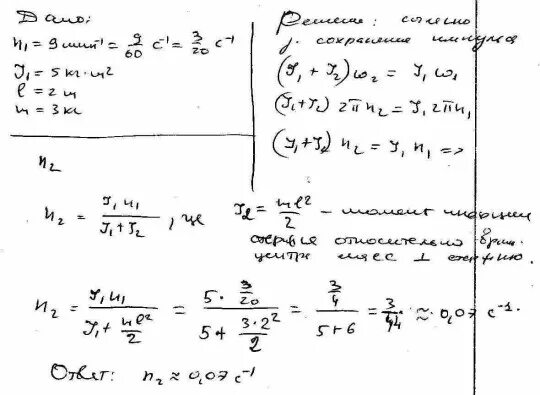 Дано:
n₁ = 9 мин⁻¹ = 9/60 с⁻¹ = 3/20 с⁻¹
J₁ = 5 кг·м²
l = 2 м
m = 3 кг
n₂
Решение: согласно
з. сохранения импульса
(J₁ + J₂)ω₂ = J₁ω₁
(J₁+J₂) 2πn₂ = J₁2πn₁
(J₁+J₂) n₂ = J₁n₁ =>
n₂ = J₁n₁/(J₁+J₂), где J₂ = ml²/2 – момент инерции
стержня относительно
центра масс ⊥ стержню.
n₂ = J₁n₁/(J₁ + ml²/2) = (5·3/20)/(5 + 3·2²/2) = (3/4)/(5+6) = 3/44 ≈ 0,07 с⁻¹.
Ответ: n₂ ≈ 0,07 с⁻¹